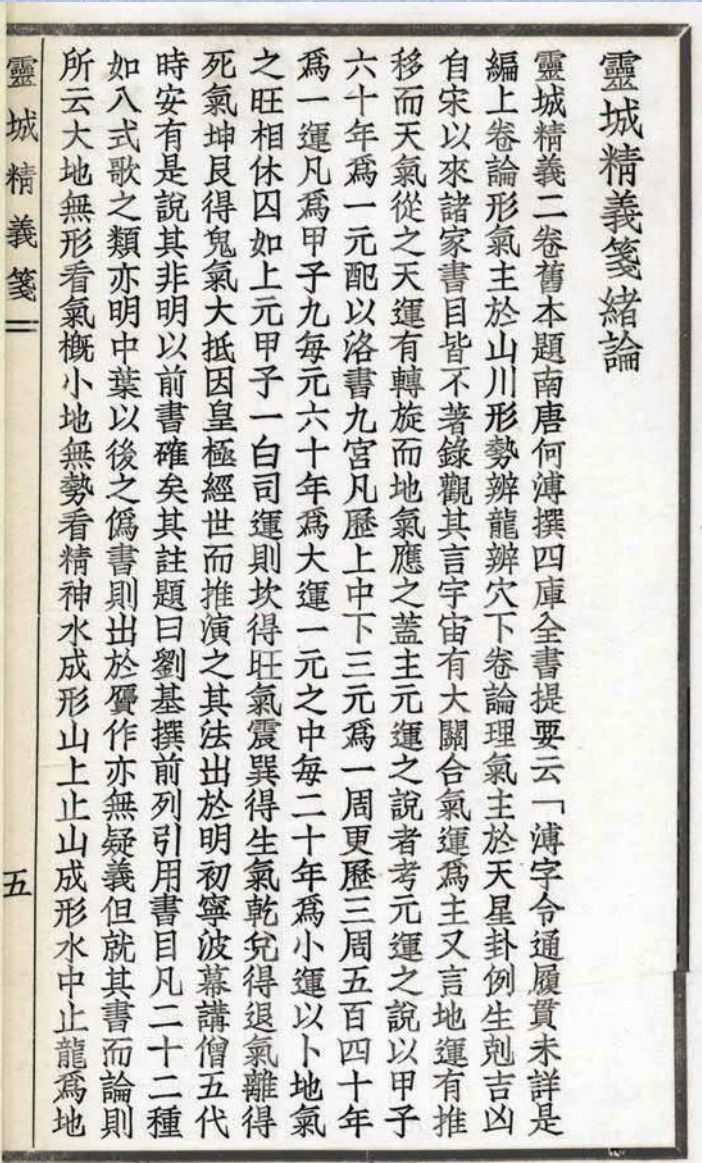 靈城精義箋緒論
靈城精義二卷舊本題南唐何溥撰四庫全書提要云「溥字令通履貫未詳是
編上卷論形氣主於山川形勢辨龍辨穴下卷論理氣主於天星卦例生剋吉凶
自宋以來諸家書目皆不著錄觀其言宇宙有大關合氣運爲主又言地運有推
移而天氣從之天運有轉旋而地氣應之蓋主元運之說者考元運之說以甲子
六十年爲一元配以洛書九宮凡歷上中下三元爲一周更歷三周五百四十年
爲一運凡爲甲子九每元六十年爲大運一元之中每二十年爲小運以卜地氣
之旺相休囚如上元甲子一白司運則坎得旺氣震巽得生氣乾兌得退氣離得
死氣坤艮得鬼氣大抵因皇極經世而推演之其法出於明初寧波幕講僧五代
時安有是說其非明以前書確矣其註題曰劉基撰前列引用書目凡二十二種
如八式歌之類亦明中葉以後之僞書則出於贗作亦無疑義但就其書而論則
所云大地無形看氣槪小地無勢看精神水成形山上止山成形水中止龍爲地
靈城精義箋
五